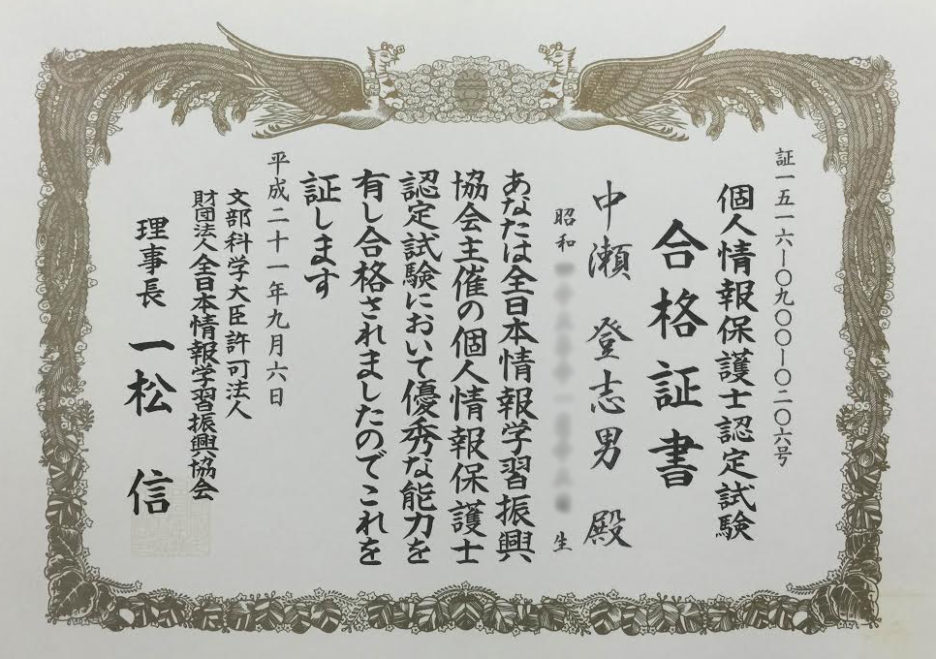 証一五一六ー〇九〇〇ー〇二〇六号
個人情報保護士認定試験
合格証書
中瀬 登志男 殿
昭和 生
あなたは全日本情報学習振興
協会主催の個人情報保護士
認定試験において優秀な能力を
有し合格されましたのでこれを
証します
平成二十一年九月六日
文部科学大臣許可法人
財団法人全日本情報学習振興協会
理事長 一松 信